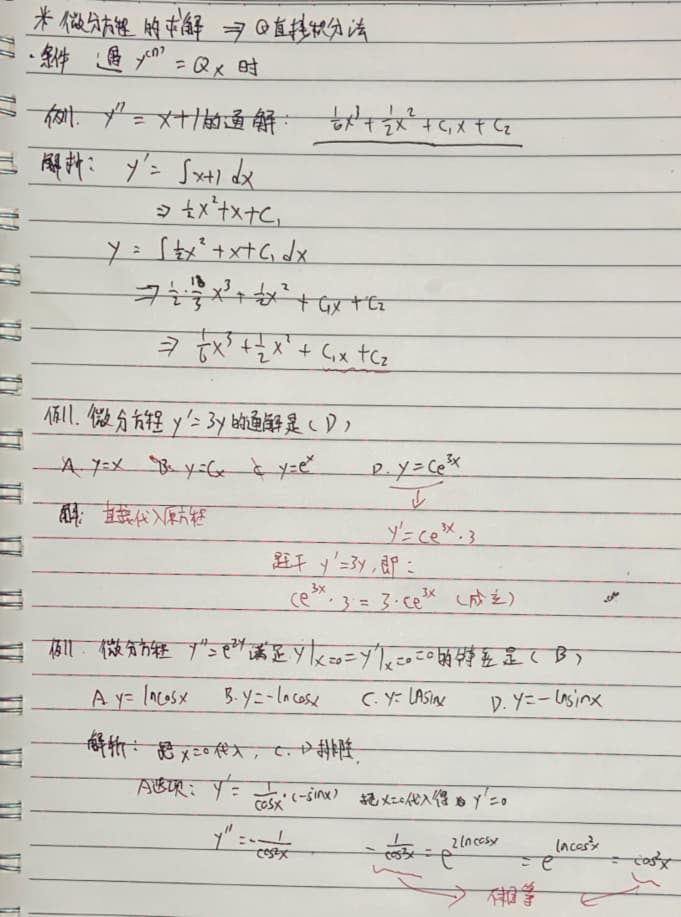 * 微分方程的求解 ⇒ ①直接积分法
·条件 遇 y⁽ⁿ⁾ = Qx 时
例1. y'' = x+1的通解: 1/6x³ + 1/2x² + C₁x + C₂
解析: y' = ∫x+1 dx
⇒ 1/2x²+x+C₁
y = ∫1/2x² + x + C₁ dx
⇒ 1/2 · 1/3 x³ + 1/2x² + C₁x + C₂
⇒ 1/6x³ + 1/2x² + C₁x + C₂
例1. 微分方程 y'=3y的通解是(D)
A. y=x B. y=Cx C. y=eˣ D. y=Ce³ˣ
解: 直接代入原方程
y'=Ce³ˣ·3
题干 y'=3y, 即:
Ce³ˣ·3 = 3·Ce³ˣ (成立)
例1. 微分方程 y''=e²ʸ满足y|x=0=y'|x=0=0的特解是(B)
A. y=lncosx B. y=-lncosx C. y=lnsinx D. y=-lnsinx
解析: 把x=0代入, C. D排除.
A选项: y' = 1/cosx·(-sinx) 把x=0代入得 y'=0
y'' = -1/cos²x -1/cos²x = e^(2lncosx) = e^(lncos²x) = cos²x
不相等